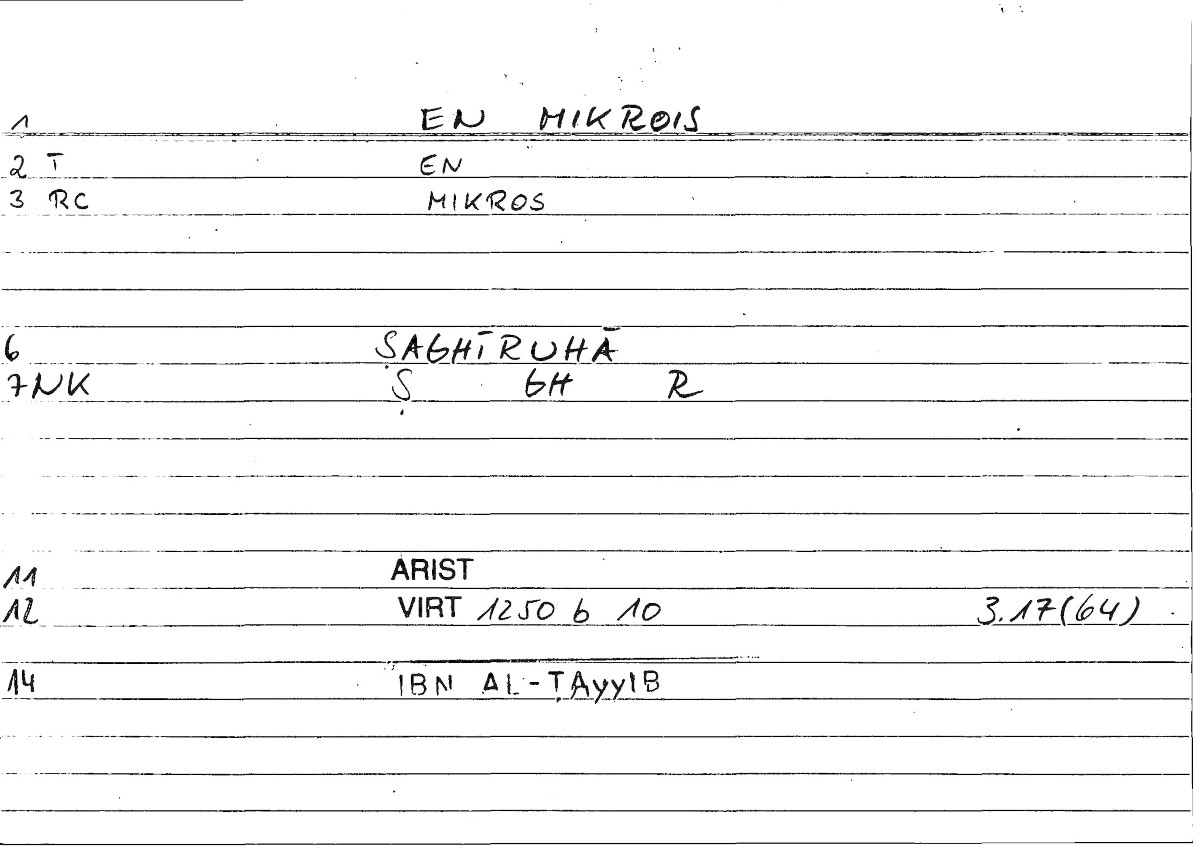 1 EN MIKROIS
2 T EN
3 RC MIKROS
6 ṢAGHĪRUHĀ
7 NK Ṣ GH R
11 ARIST
12 VIRT 1250 b 10 3.17(64)
14 IBN AL-ṬAyyIB